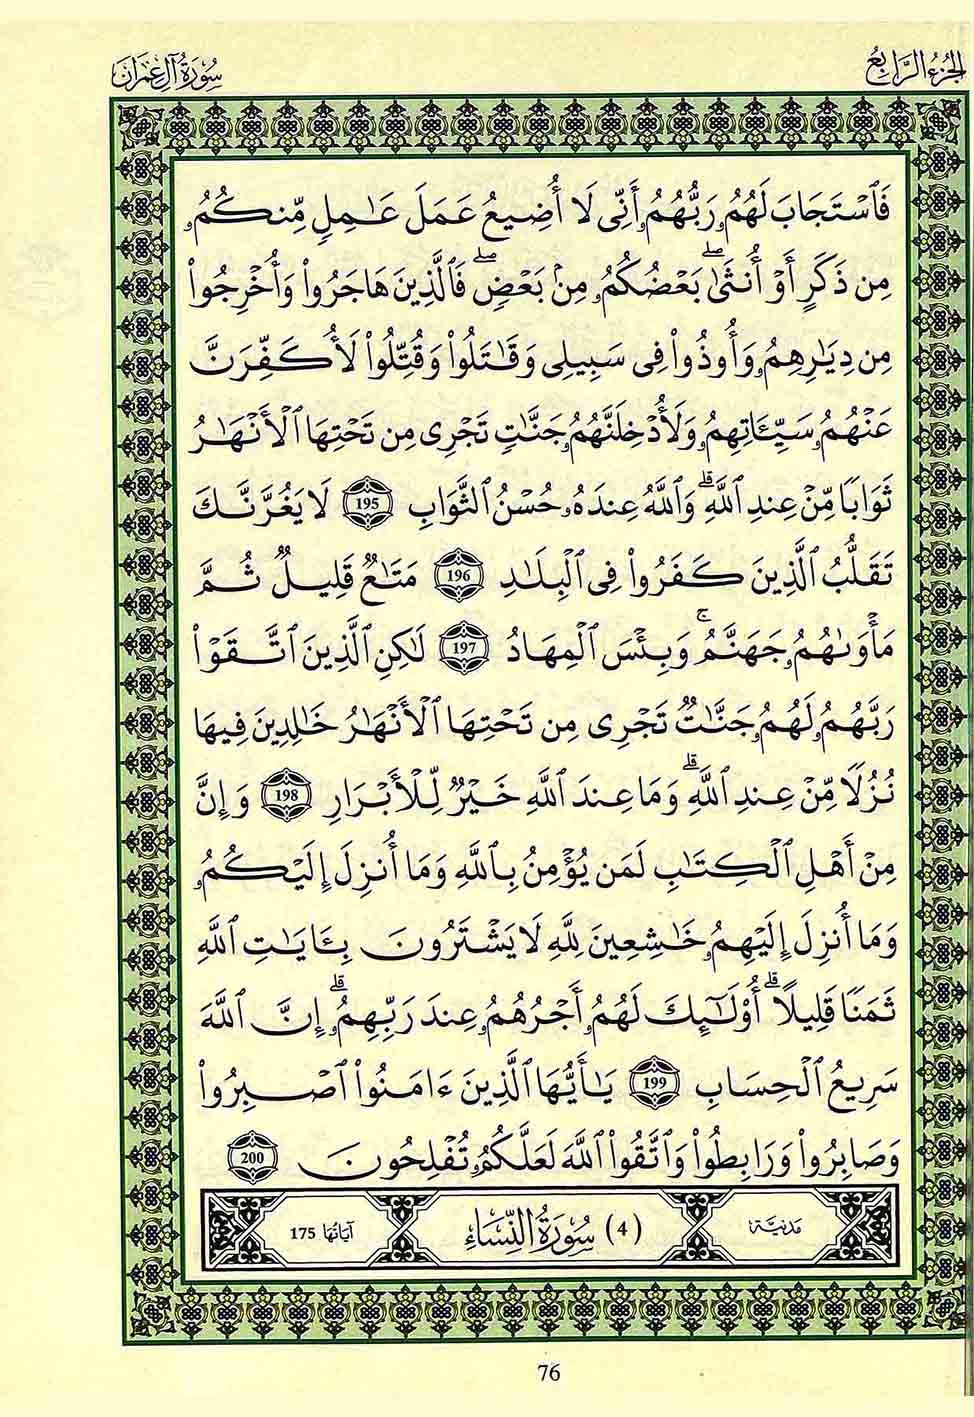 الجُزءُ الرَّابِعُ
سُورَةُ آلِ عِمْرَانَ
فَٱسْتَجَابَ لَهُمُۥ رَبُّهُمُۥ أَنِّى لَا أُضِيعُ عَمَلَ عَـٰمِلٍ مِّنكُمُۥ
مِن ذَكَرٍ أَوْ أُنثَىٰۖ بَعْضُكُمُۥ مِنۢ بَعْضٍۖ فَٱلَّذِينَ هَاجَرُوا۟ وَأُخْرِجُوا۟
مِن دِيَـٰرِهِمُۥ وَأُوذُوا۟ فِى سَبِيلِى وَقَـٰتَلُوا۟ وَقُتِّلُوا۟ لَأُكَفِّرَنَّ
عَنْهُمُۥ سَيِّـَٔاتِهِمُۥ وَلَأُدْخِلَنَّهُمُۥ جَنَّـٰتٍ تَجْرِى مِن تَحْتِهَا ٱلْأَنْهَـٰرُ
ثَوَابًا مِّنْ عِندِ ٱللَّهِۗ وَٱللَّهُ عِندَهُۥ حُسْنُ ٱلثَّوَابِ 195 لَا يَغُرَّنَّكَ
تَقَلُّبُ ٱلَّذِينَ كَفَرُوا۟ فِى ٱلْبِلَـٰدِ 196 مَتَـٰعٌ قَلِيلٌ ثُمَّ
مَأْوَىٰهُمُۥ جَهَنَّمُۚ وَبِئْسَ ٱلْمِهَادُ 197 لَـٰكِنِ ٱلَّذِينَ ٱتَّقَوْا۟
رَبَّهُمُۥ لَهُمُۥ جَنَّـٰتٌ تَجْرِى مِن تَحْتِهَا ٱلْأَنْهَـٰرُ خَـٰلِدِينَ فِيهَا
نُزُلًا مِّنْ عِندِ ٱللَّهِۗ وَمَا عِندَ ٱللَّهِ خَيْرٌ لِّلْأَبْرَارِ 198 وَإِنَّ
مِنْ أَهْلِ ٱلْكِتَـٰبِ لَمَن يُؤْمِنُ بِٱللَّهِ وَمَا أُنزِلَ إِلَيْكُمُۥ
وَمَا أُنزِلَ إِلَيْهِمُۥ خَـٰشِعِينَ لِلَّهِ لَا يَشْتَرُونَ بِـَٔايَـٰتِ ٱللَّهِ
ثَمَنًا قَلِيلًاۗ أُو۟لَـٰٓئِكَ لَهُمُۥ أَجْرُهُمُۥ عِندَ رَبِّهِمُۥۗ إِنَّ ٱللَّهَ
سَرِيعُ ٱلْحِسَابِ 199 يَـٰأَيُّهَا ٱلَّذِينَ ءَامَنُوا۟ ٱصْبِرُوا۟
وَصَابِرُوا۟ وَرَابِطُوا۟ وَٱتَّقُوا۟ ٱللَّهَ لَعَلَّكُمُۥ تُفْلِحُونَ 200
مَدَنِيَّة (4) سُورَةُ النِّسَاءِ آيَاتُها 175
76